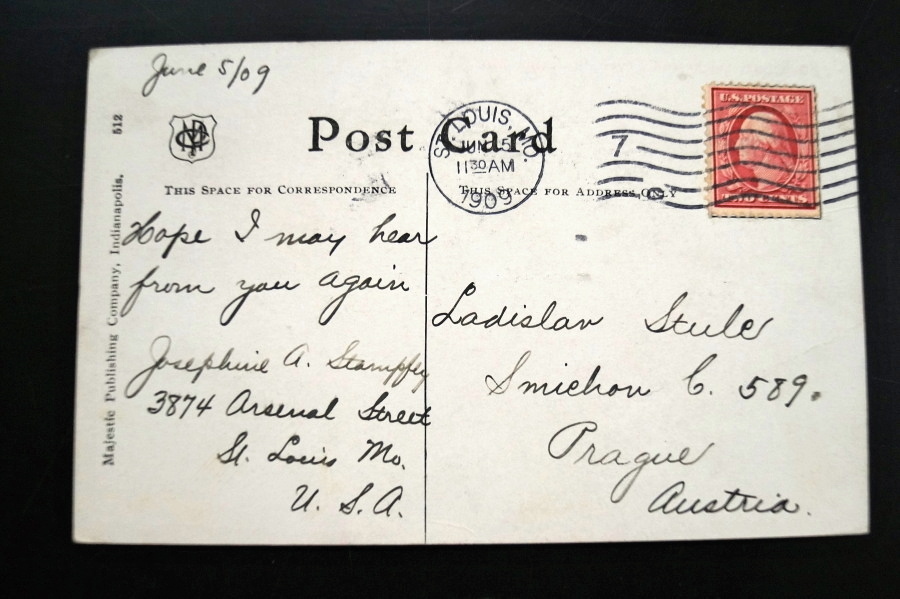 June 5/09
Post Card
ST. LOUIS, MO.
JUN 5
11 30 AM
1909
7
U.S. POSTAGE
CENTS
THIS SPACE FOR CORRESPONDENCE
THIS SPACE FOR ADDRESS ONLY
Hope I may hear
from you again
Josephine A. Stampfly
3874 Arsenal Street
St. Louis Mo.
U. S. A.
Ladislav Stule
Smichov C. 589.
Prague
Austria.
Majestic Publishing Company, Indianapolis.
512